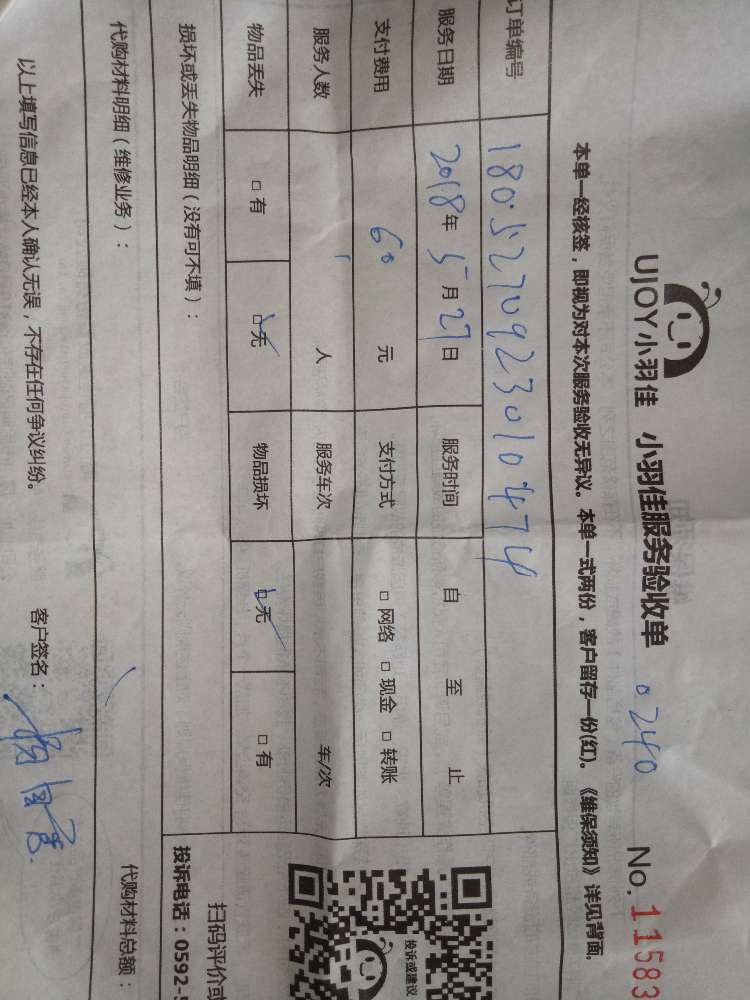 UJOY小羽佳 小羽佳服务验收单 0240 No. 11583
本单一经核签，即视为对本次服务验收无异议。本单一式两份，客户留存一份(红)。《维保须知》详见背面。
订单编号 180527092301047 4
服务日期 2018年5月27日 服务时间 自 至 止
支付费用 60 元 支付方式 □网络 □现金 □转账
服务人数 1 人 服务车次 车/次
物品丢失 □有 □无 物品损坏 □无 □有
损坏或丢失物品明细（没有可不填）：
代购材料明细（维修业务）：
代购材料总额：
以上填写信息已经本人确认无误，不存在任何争议纠纷。 客户签名：
投诉或建议
扫码评价或
投诉电话：0592-5